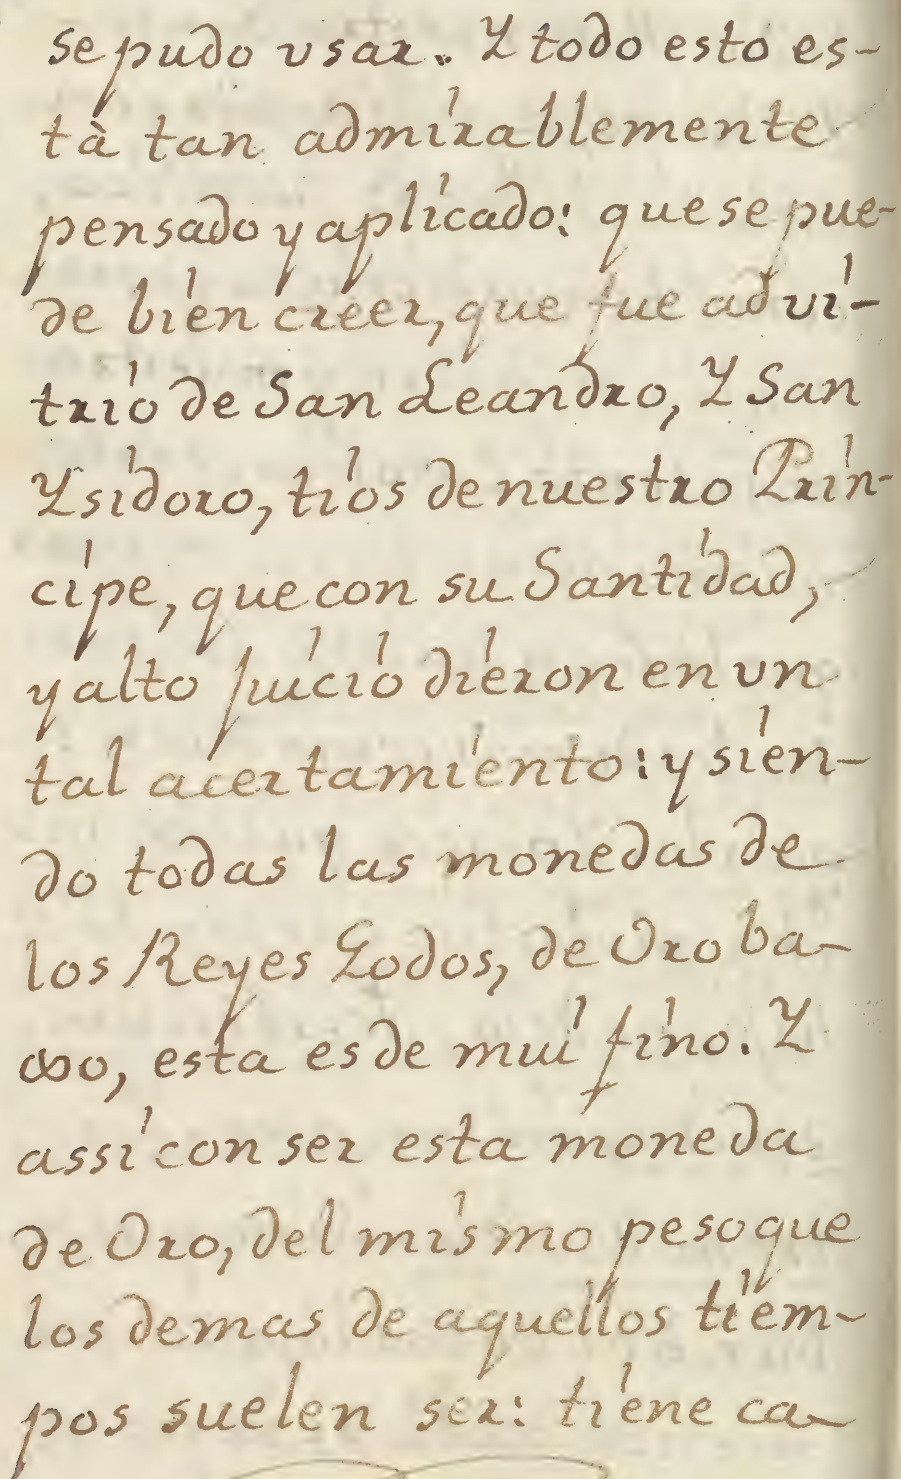 se pudo vsar. Y todo esto es-
tà tan admirablemente
pensado y aplicado: que se pue-
de bien creer, que fue advi-
trio de San Leandro, Y San
Ysidoro, tios de nuestro Prin-
cipe, que con su Santidad,
y alto juicio dieron en vn
tal acertamiento: y sien-
do todas las monedas de
los Reyes Godos, de Oro ba-
xo, esta es de mui fino. Y
assi con ser esta moneda
de Oro, del mismo peso que
los demas de aquellos tiem-
pos suelen ser: tiene ca-